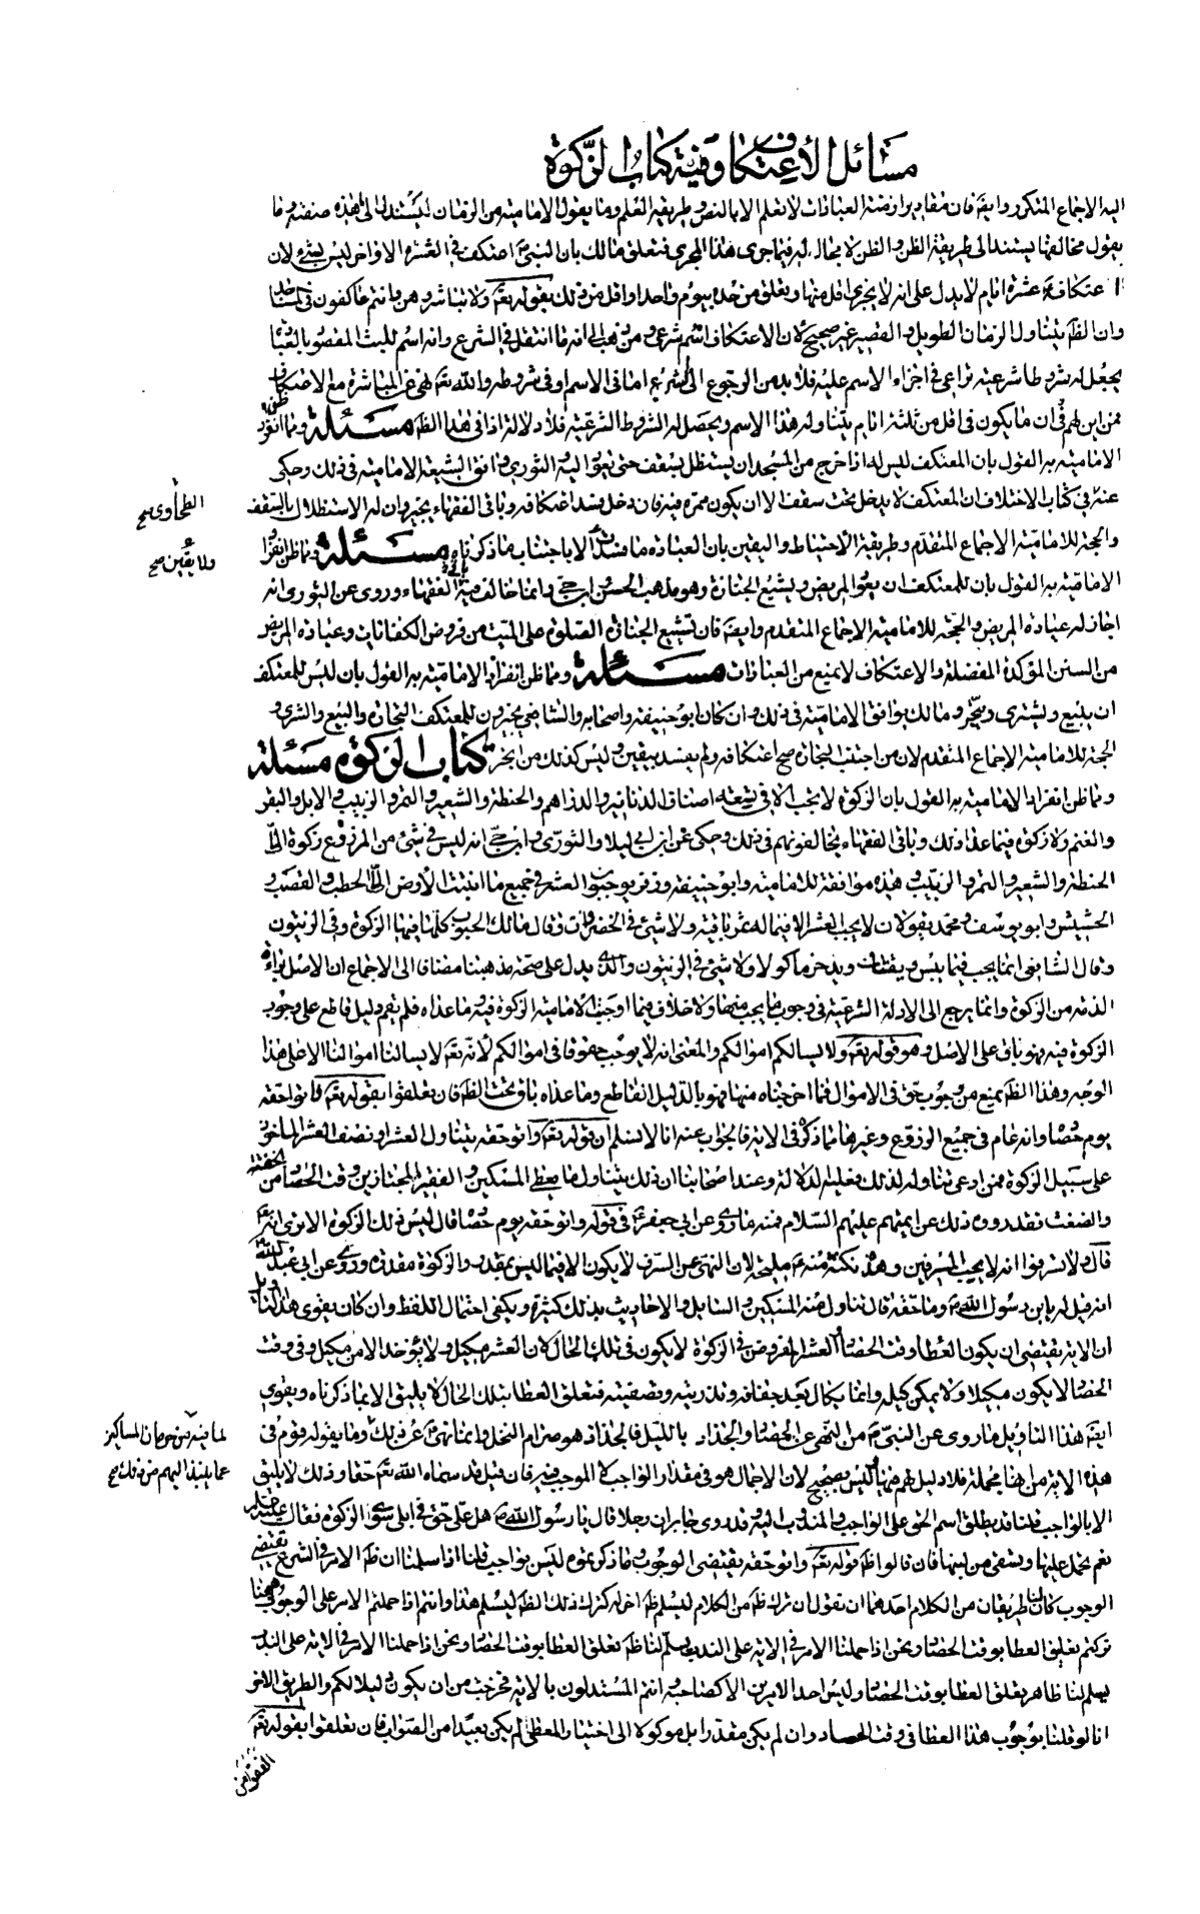 مسائل الأعتكاف وفيه كتاب الزكوة
اليه الاجماع المتكرر وايضا فان مقادير ازمنة العبادات لا تعلم الا بالنص وطريقة العلم وما يقوله الامامية من الزمان يستند الى هذه صفته وما
يقوله مخالفها يستند الى طريقة الظن والظن لا مجال له فيما جرى هذا المجرى فتعلق مالك بان النبى ص اعتكف فى العشرة الاواخر ليس بشئ لان
اعتكافه عشرة ايام لا يدل على انه لا يجزى اقل منها وتعلق من حده بيوم واحد او اقل من ذلك بقوله تع ولا تباشروهن وانتم عاكفون فى المساجد
وان الظ يتناول الزمان الطويل والقصير غير صحيح لان الاعتكاف اسم شرعى ومن ذهب الى انه ما انتقل فى الشرع وانه اسم للبث المقصود بالعبادة
يجعل له شروطا شرعية تراعى فى اجزاء الاسم عليه فلا بد من الرجوع الى الشرع اما فى الاسم او فى شروطه والله تع نهى عن المباشرة مع الاعتكاف
فمن اين لهم ان ما يكون فى اقل من ثلثة ايام يتناوله هذا الاسم ويحصل له الشروط الشرعية فلا دلالة اذا فى هذا الظ مسئلة ومما ظن انفراد
الامامية به القول بان المعتكف ليس له اذا خرج من المسجد ان يستظل بسقف حتى يعود اليه والثورى وافق الشيعة الامامية فى ذلك وحكى
الطحاوى صح
عنه فى كتاب الاختلاف ان المعتكف لا يدخل تحت سقف الا ان يكون ممره فيه فان دخل فسد اعتكافه وباقى الفقهاء يجيزون له الاستظلال بالسقف
والحجة للامامية الاجماع المتقدم وطريقة الاحتياط واليقين بان العبادة ما فسدت الا باجتناب ما ذكرناه مسئلة ومما ظن انفراد
ولا يقين صح
الامامية به القول بان للمعتكف ان يعود المريض ويشيع الجنازة وهو مذهب الحسن بن حى وانما خالف فيه باقى الفقهاء وروى عن الثورى انه
اجاز له عيادة المريض والحجة للامامية الاجماع المتقدم وايضا فان تشييع الجنازة والصلوة على الميت من فروض الكفايات وعيادة المريض
من السنن المؤكدة المفضلة والاعتكاف لا يمنع من العبادات مسئلة ومما ظن انفراد الامامية به القول بان ليس للمعتكف
ان يبيع ويشترى ويتجر ومالك يوافق الامامية فى ذلك وان كان ابو حنيفة واصحابه والشافعى يجيزون للمعتكف التجارة والبيع والشرى و
الحجة للامامية الاجماع المتقدم لان من اجتنب التجارة صح اعتكافه ولم يفسد بيقين وليس كذلك من اتجر كتاب الزكوة مسئلة
ومما ظن انفراد الامامية به القول بان الزكوة لا يجب الا فى تسعة اصناف الدنانير والدراهم والحنطة والشعير والتمر والزبيب والابل والبقر
والغنم ولا زكوة فيما عدا ذلك وباقى الفقهاء يخالفونهم فى ذلك وحكى عن ابن ابى ليلا والثورى وابن حى انه ليس فى شئ من الزروع زكوة الا
الحنطة والشعير والتمر والزبيب وهذه موافقة للامامية وابو حنيفة وزفر يوجبون العشر فى جميع ما انبتت الارض الا الحطب والقصب و
الحشيش وابو يوسف ومحمد يقولان لا يجب العشر الا فيما له ثمرة باقية ولا شئ فى الخضراوات وقال مالك الحبوب كلها فيها الزكوة وفى الزيتون
وقال الشافعى انما يجب فيما ييبس ويقتات ويدخر ماكولا ولا شئ فى الزيتون والذى يدل على صحة مذهبنا مضافا الى الاجماع ان الاصل براءة
الذمة من الزكوة وانما يرجع الى الادلة الشرعية فى وجوب ما يجب منها ولا خلاف فيما اوجبت الامامية الزكوة فيه وما عداه فلم يقم دليل قاطع على وجوب
الزكوة فيه فهو باق على الاصل وهو قوله تع ولا يسالكم اموالكم والمعنى انه لا يوجب حقوقا فى اموالكم لانه تع لا يسالنا اموالنا الا على هذا
الوجه وهذا الظ يمنع من وجوب حق فى الاموال فما اخرجناه منها فهو بالدليل القاطع وما عداه باق تحت الظ فان تعلقوا بقوله تع واتوا حقه
يوم حصاده وانه عام فى جميع الزروع وغيرها مما ذكر فى الاية فالجواب عنه انا لا نسلم ان قوله تع واتوا حقه يتناول العشر او نصف العشر الماخوذ
على سبيل الزكوة فمن ادعى تناوله لذلك فعليه الدلالة وعند اصحابنا ان ذلك يتناول ما يعطى المسكين والفقير والمجتازين وقت الحصاد من الحفنة
والضغث فقد رووا ذلك عن ائمتهم عليهم السلام فمنه ما روى عن ابى جعفر ع فى قوله واتوا حقه يوم حصاده قال ليس ذلك الزكوة الا ترى انه تع
قال ولا تسرفوا انه لا يحب المسرفين وهذه نكتة منه ع مليحة لان النهى عن السرف لا يكون الا فيما ليس بمقدر والزكوة مقدرة وروى عن ابى عبد الله ع
انه قيل له يا بن رسول الله ص وما حقه قال تناول منه المسكين والسائل والاحاديث بذلك كثيرة ويكفى احتمال اللفظ وان كان يقوى هذا التاويل
ان الاية يقتضى ان يكون العطا وقت الحصاد والعشر المفروض فى الزكوة لا يكون فى تلك الحال لان العشر مكيل ولا يؤخذ الا من مكيل وفى وقت
الحصاد لا يكون مكيلا ولا يمكن كيله وانما يكال بعد جفافه وتذريته وتصفيته فتعلق العطا بتلك الحال لا يليق الا بما ذكرناه ويقوى
ايضا هذا التاويل ما روى عن النبى ص من النهى عن الحصاد والجذاذ بالليل فالجذاذ هو صرام النخل وانما نهى ص عن ذلك وما يقوله قوم فى
لما فيه من حرمان المساكين
عما يلبذ اليهم من ذلك صح
هذه الاية من انها مجملة فلا دليل لهم فيها ليس بصحيح لان الاجمال هو فى مقدار الواجب لا الموجب فيه فان قيل قد سماه الله تع حقا وذلك لا يليق
الا بالواجب قلنا قد يطلق اسم الحق على الواجب والمندوب اليه وقد روى جابر ان رجلا قال يا رسول الله ص هل على حق فى ابلى سوى الزكوة فقال عليه السلم
نعم تحمل عليها وتسقى من لبنها فان قالوا ظ قوله تع واتوا حقه يقتضى الوجوب وما ذكرتموه ليس بواجب قلنا اذا سلمنا ان ظ الامر فى الشرع يقتضى
الوجوب كان لنا طريقان من الكلام احدهما ان نقول ان ترك ظ من الكلام ليسلم ظ اخر له كترك ذلك الظ ليسلم هذا وانتم اذا حملتم الامر على الوجوب هيهنا
تركتم تعليق العطا بوقت الحصاد ونحن اذا حملنا الامر فى الاية على الندب سلم لنا ظ تعلق العطا بوقت الحصاد ونحن اذا حملنا الامر فى الاية على الندب
يسلم لنا ظاهر تعلق العطا بوقت الحصاد وليس احد الامرين الا كصاحبه وانتم المستدلون بالاية فخرجت من ان يكون دليلا لكم والطريق الاخر
انا لو قلنا بوجوب هذا العطا فى وقت الحصاد وان لم يكن مقدرا بل موكولا الى اختيار المعطى لم يكن بعيدا من الصواب فان تعلقوا بقوله تع
انفقوا من